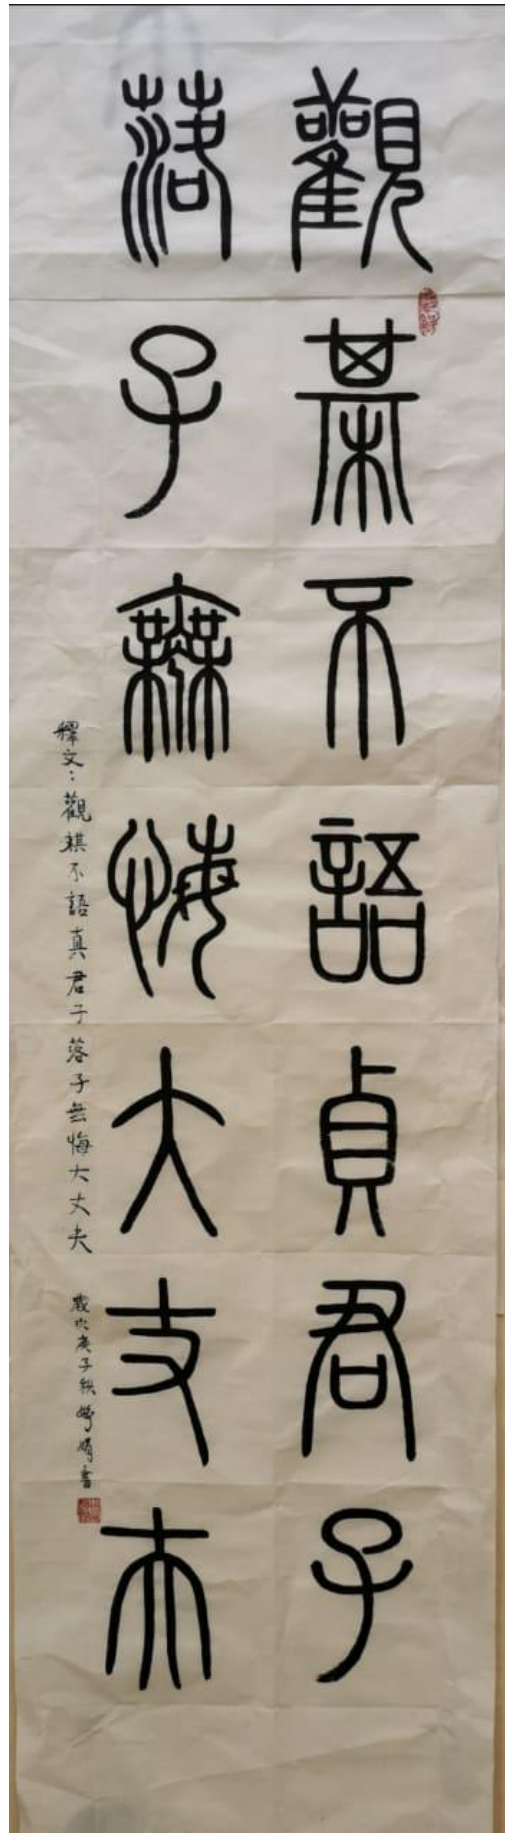 觀棊不語貞君子
落子無悔大丈夫
釋文：觀棋不語真君子落子無悔大丈夫
歲次庚子秋
書